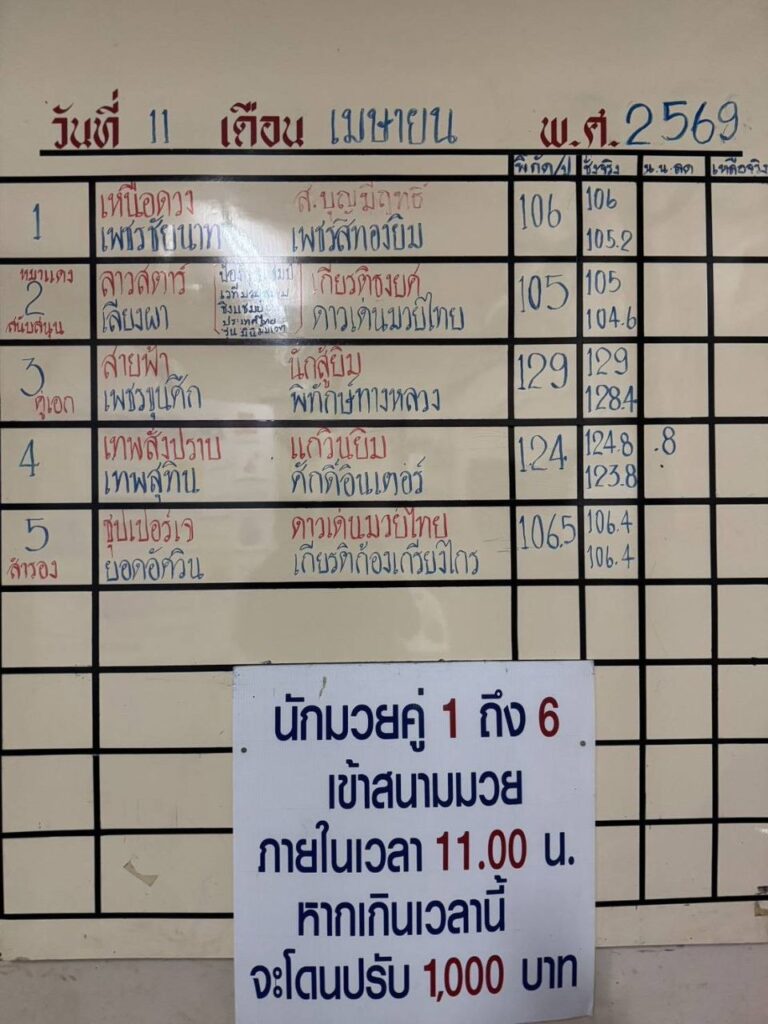 วันที่ 11 เดือน เมษายน พ.ศ. 2569
พิกัด/ป ชั่งจริง น.น.ลด เหลือจริง
1 เหนือดวง ส.บุญมีฤทธิ์ 106 106
เพชรชัยนาท เพชรสี่ทองยิม 105.2
หมาแดง
2 ลาวสตาร์ เกียรติธงยศ 105 105
สนับสนุน เลียงผา ดาวเด่นมวยไทย 104.6
ชิงแชมป์
ประเทศไทย
3 สายฟ้า นักสู้ยิม 129 129
คู่เอก เพชรขุนศึก พิทักษ์ทางหลวง 128.4
4 เทพสั่งปราบ แก้วินยิม 124 124.8 .8
เทพสุทิน ศักดิ์อินเตอร์ 123.8
5 ซุปเปอร์เจ ดาวเด่นมวยไทย 106.5 106.4
สำรอง ยอดอัศวิน เกียรติก้องเกรียงไกร 106.4
นักมวยคู่ 1 ถึง 6
เข้าสนามมวย
ภายในเวลา 11.00 น.
หากเกินเวลานี้
จะโดนปรับ 1,000 บาท